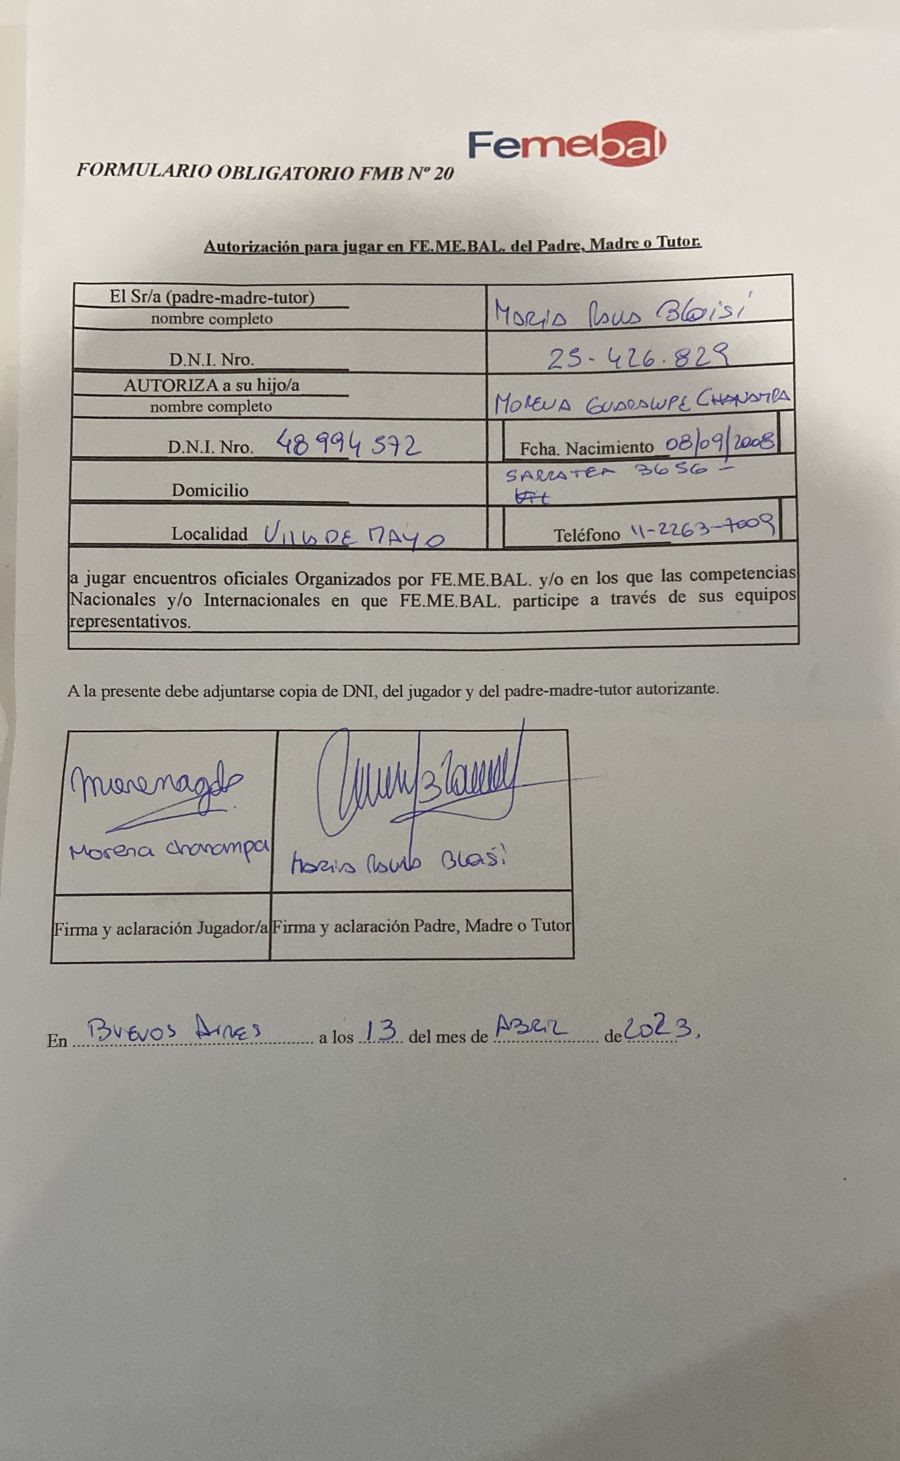 Femebal
FORMULARIO OBLIGATORIO FMB Nº 20
Autorización para jugar en FE.ME.BAL. del Padre, Madre o Tutor.
El Sr/a (padre-madre-tutor)
nombre completo
Maria Blaisi
D.N.I. Nro.
25-426.829
AUTORIZA a su hijo/a
nombre completo
MORENA GUADALUPE CHANAMPA
D.N.I. Nro. 48994572
Fcha. Nacimiento 08/09/2008
Domicilio
SARRATEA 3656-
Localidad Villa DE MAYO
Teléfono 11-2263-7009
a jugar encuentros oficiales Organizados por FE.ME.BAL. y/o en los que las competencias
Nacionales y/o Internacionales en que FE.ME.BAL. participe a través de sus equipos
representativos.
A la presente debe adjuntarse copia de DNI, del jugador y del padre-madre-tutor autorizante.
Morena Chanampa
Maria Blasi
Firma y aclaración Jugador/a
Firma y aclaración Padre, Madre o Tutor
En BUENOS AIRES a los 13 del mes de ABRIL de 2023.